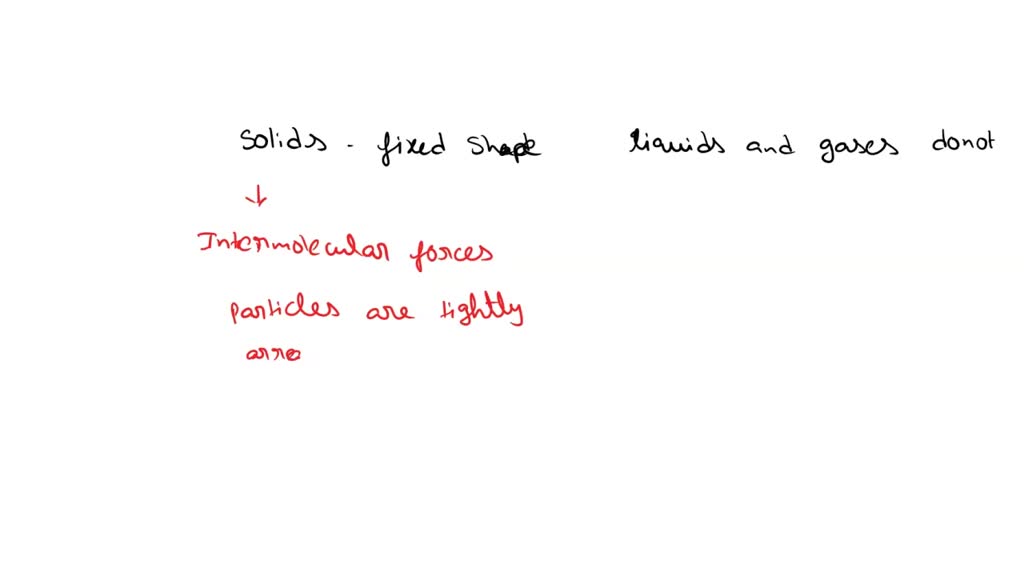 Solids - fixed shape liquids and gases donot
Intermolecular forces
particles are tightly
arra